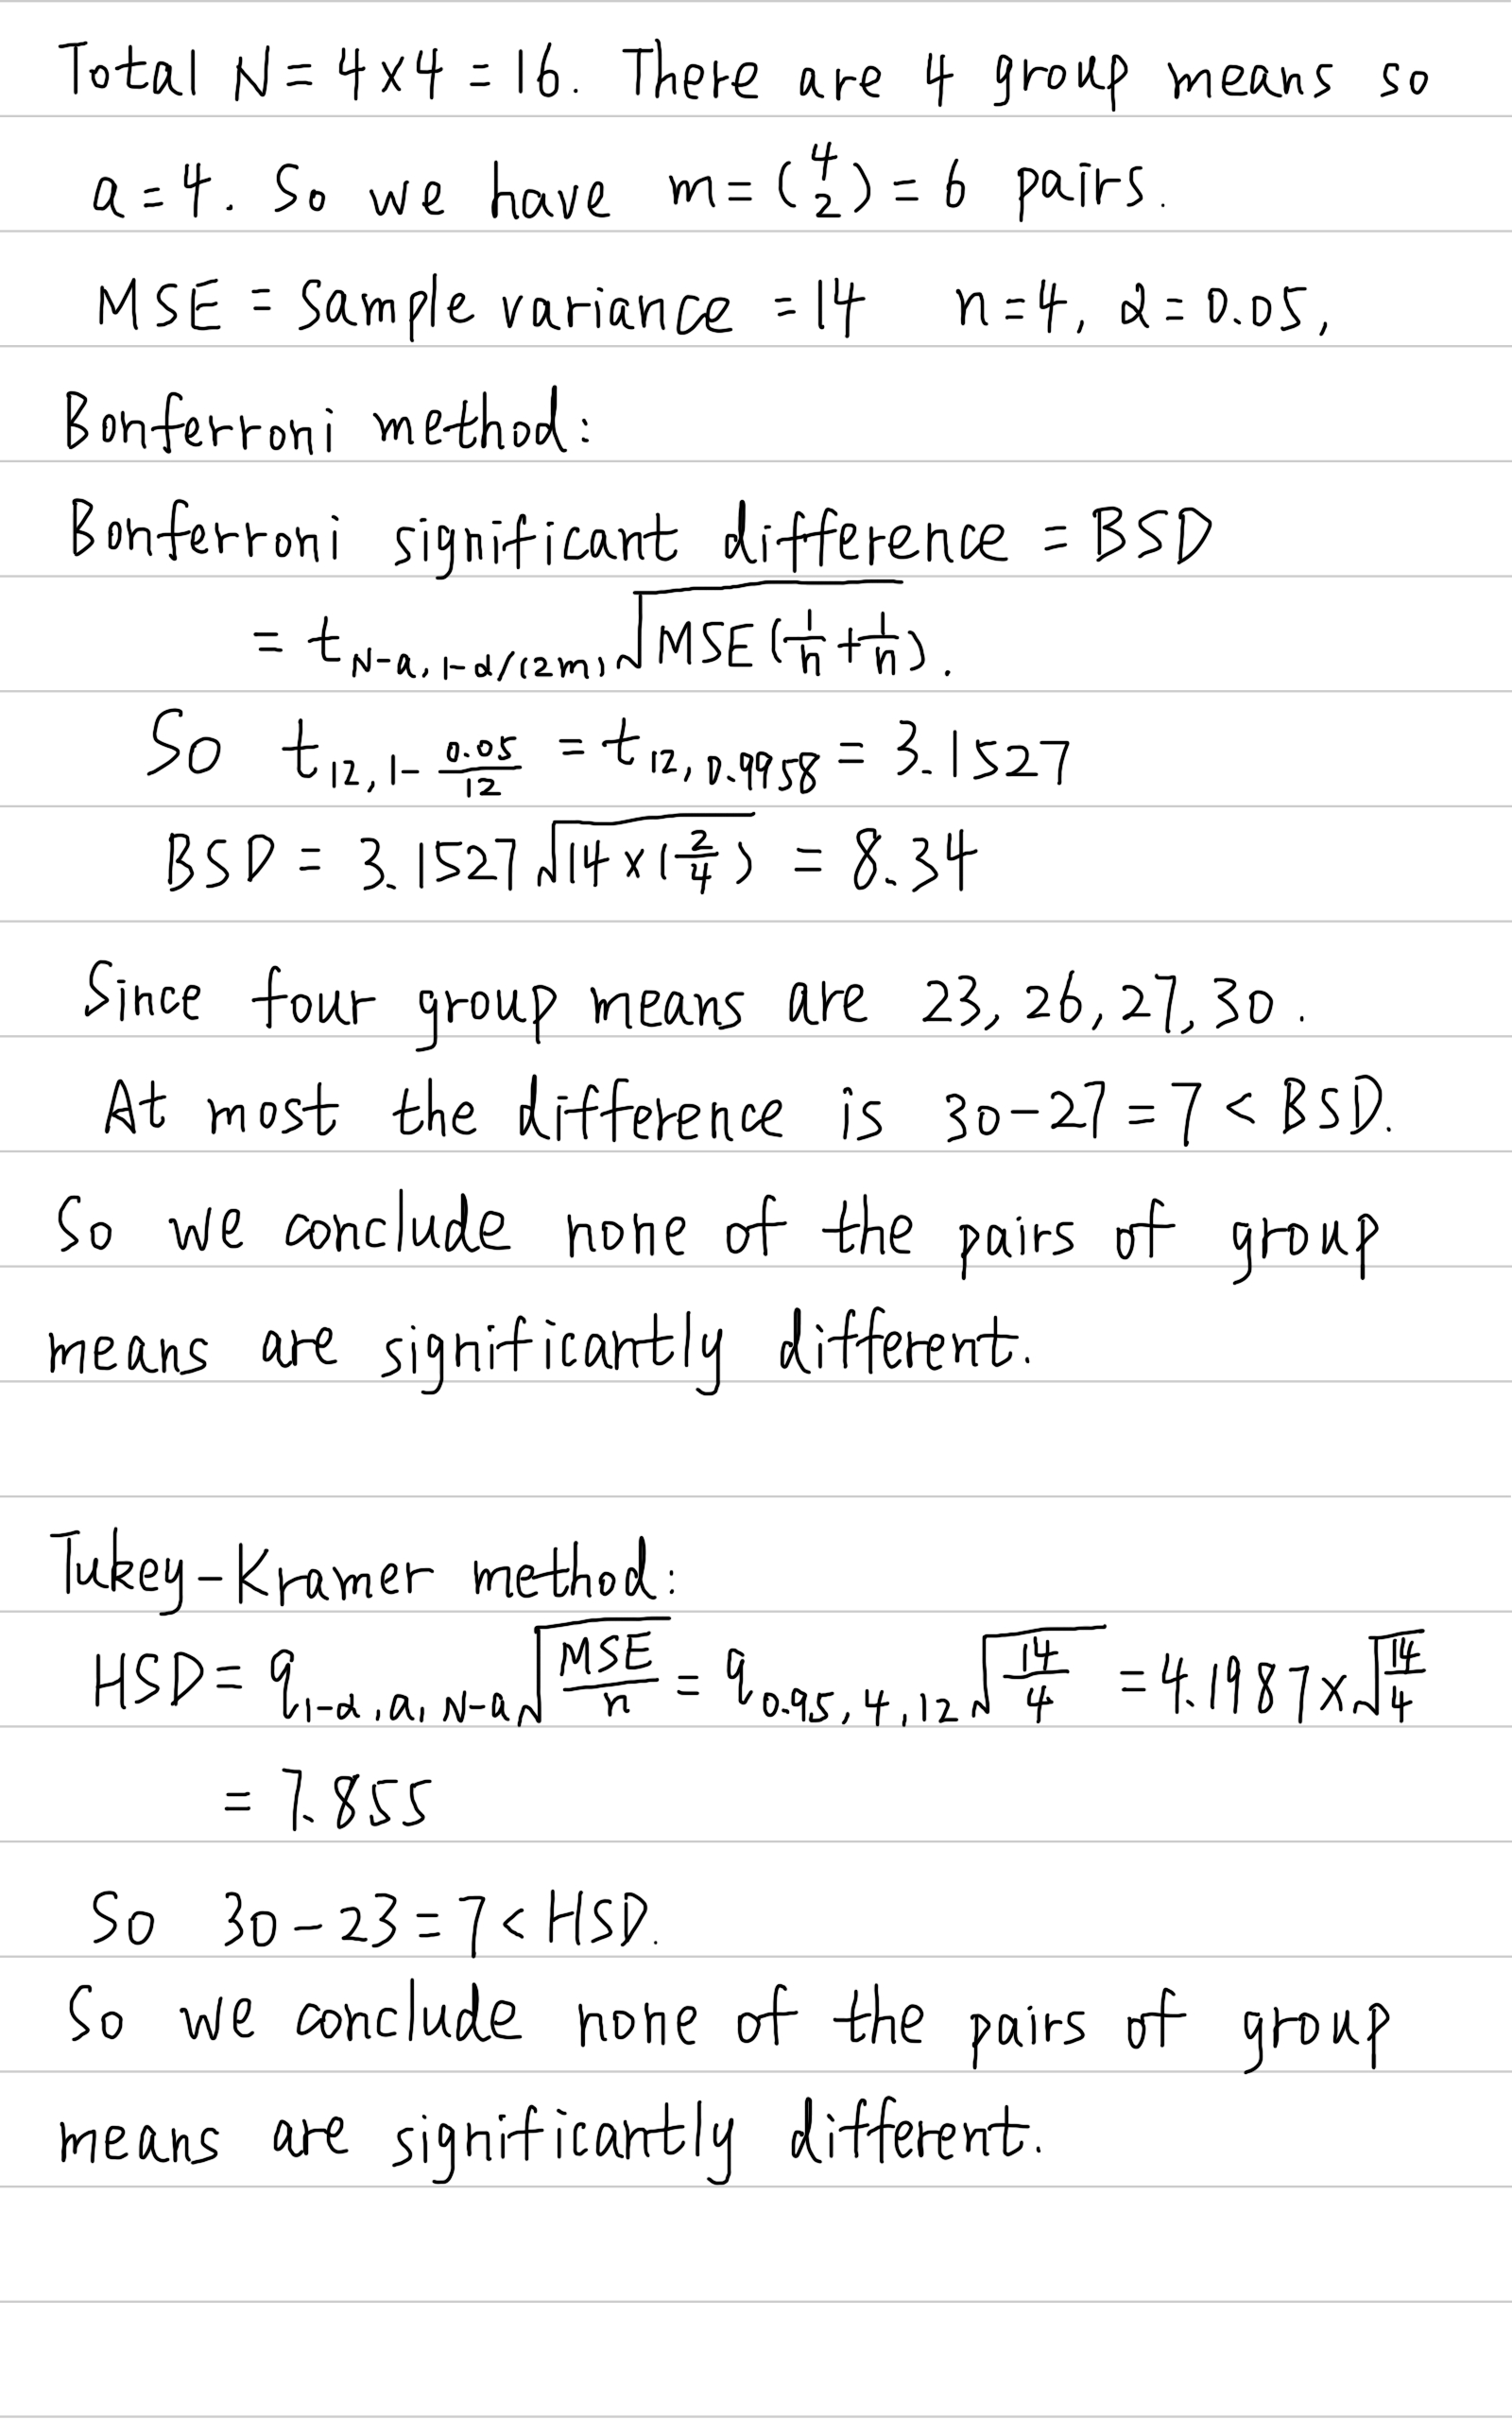 Total N = 4×4 = 16. There are 4 group means so
a = 4. So we have m = (4 2) = 6 pairs.
MSE = sample variance = 14 n=4, α = 0.05,
Bonferroni method:
Bonferroni significant difference = BSD
= t_{N-a, 1-α/(2m)} √(MSE(1/n + 1/n)).
So t_{12, 1 - 0.05/12} = t_{12, 0.9958} = 3.1527
BSD = 3.1527 √(14×(2/4)) = 8.34
Since four group means are 23, 26, 27, 30.
At most the difference is 30-27 = 7 < BSD.
So we conclude none of the pairs of group
means are significantly different.
Tukey-Kramer method:
HSD = q_{1-α, a, N-a} √(MSE/n) = q_{0.95, 4, 12} √(14/4) = 4.1987 × √(14/4)
= 7.855
So 30-23 = 7 < HSD.
So we conclude none of the pairs of group
means are significantly different.